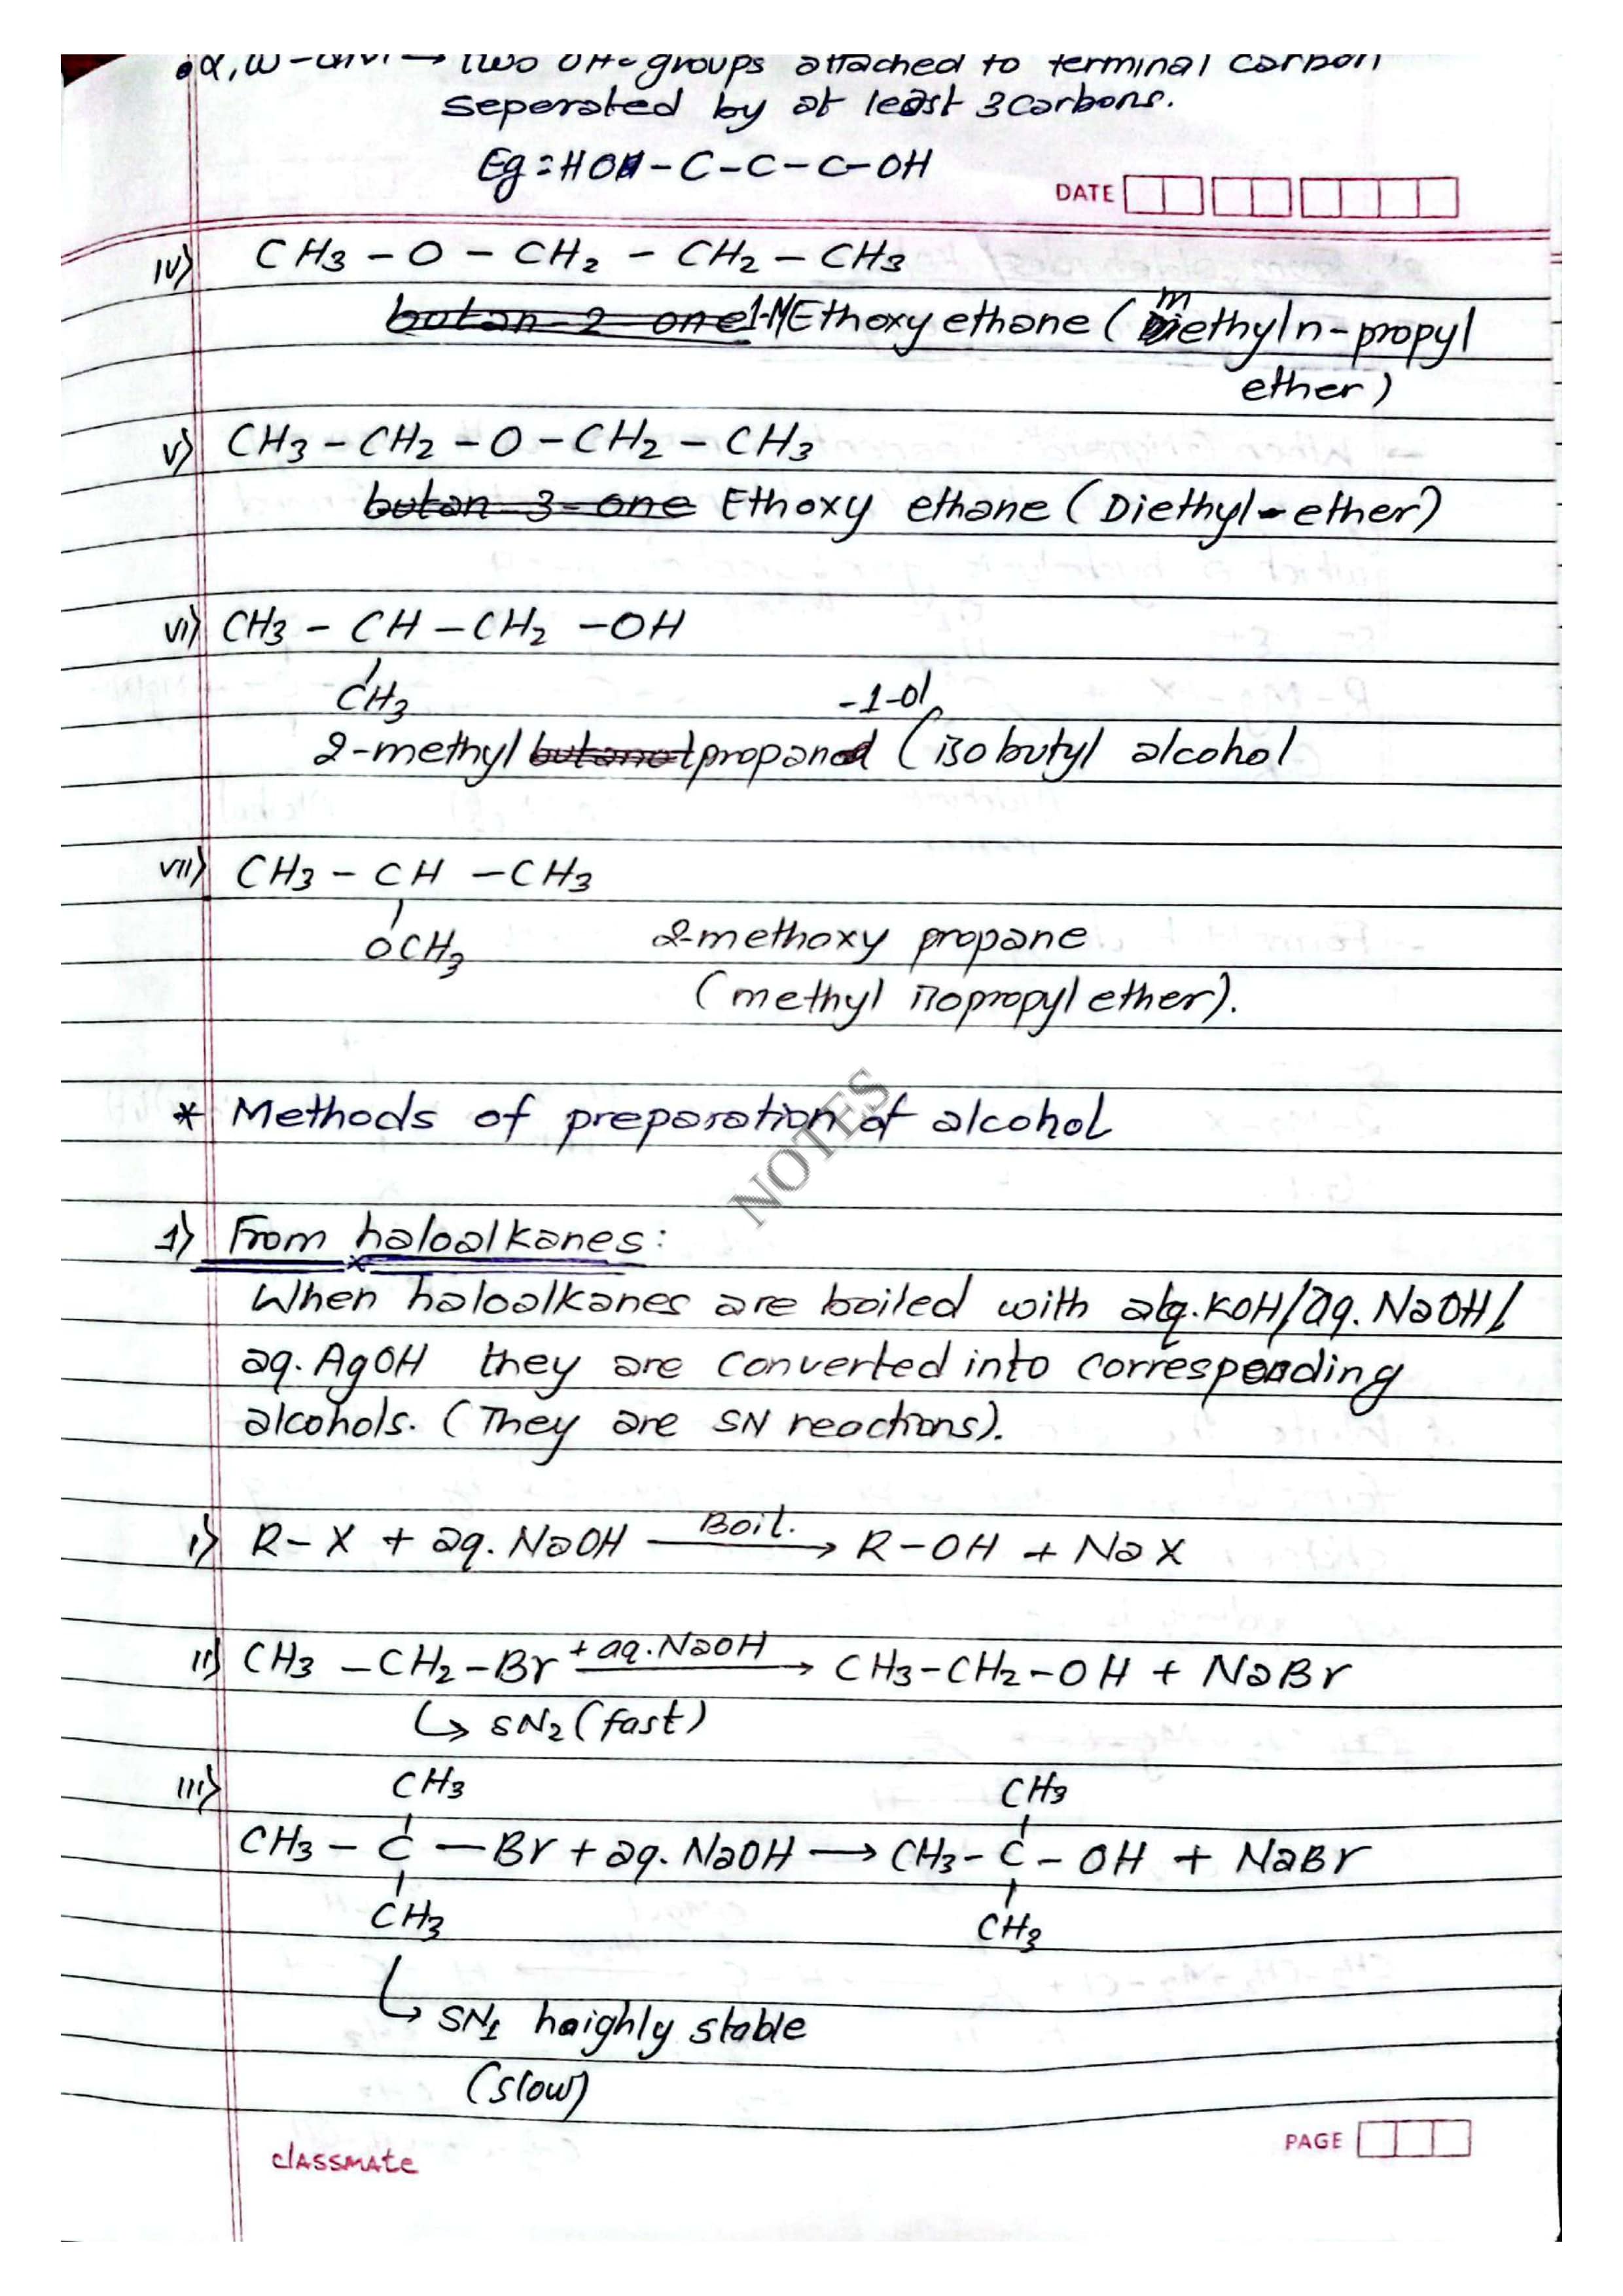 • α, ω - → two OH- groups attached to terminal carbon
seperated by at least 3 carbons.
Eg = HO - C - C - C - OH
DATE
iv) CH3 - O - CH2 - CH2 - CH3
botan-2-one 1-MEthoxy ethane (methyl n-propyl
ether)
v) CH3 - CH2 - O - CH2 - CH3
butan-3-one Ethoxy ethane (Diethyl-ether)
vi) CH3 - CH - CH2 - OH
CH3
-1-ol
2-methyl butanol propan (isobutyl alcohol
vii) CH3 - CH - CH3
OCH3 2-methoxy propane
(methyl isopropyl ether).
* Methods of preparation of alcohol
NOTES
1) From haloalkanes:
When haloalkanes are boiled with aq. KOH/aq. NaOH/
aq. AgOH they are converted into corresponding
alcohols. (They are SN reactions).
i) R - X + aq. NaOH Boil. → R - OH + NaX
ii) CH3 - CH2 - Br + aq. NaOH → CH3 - CH2 - OH + NaBr
↳ SN2 (fast)
iii) CH3 CH3
CH3 - C - Br + aq. NaOH → CH3 - C - OH + NaBr
CH3 CH3
↳ SN1 haighly stable
(slow)
PAGE
classmate